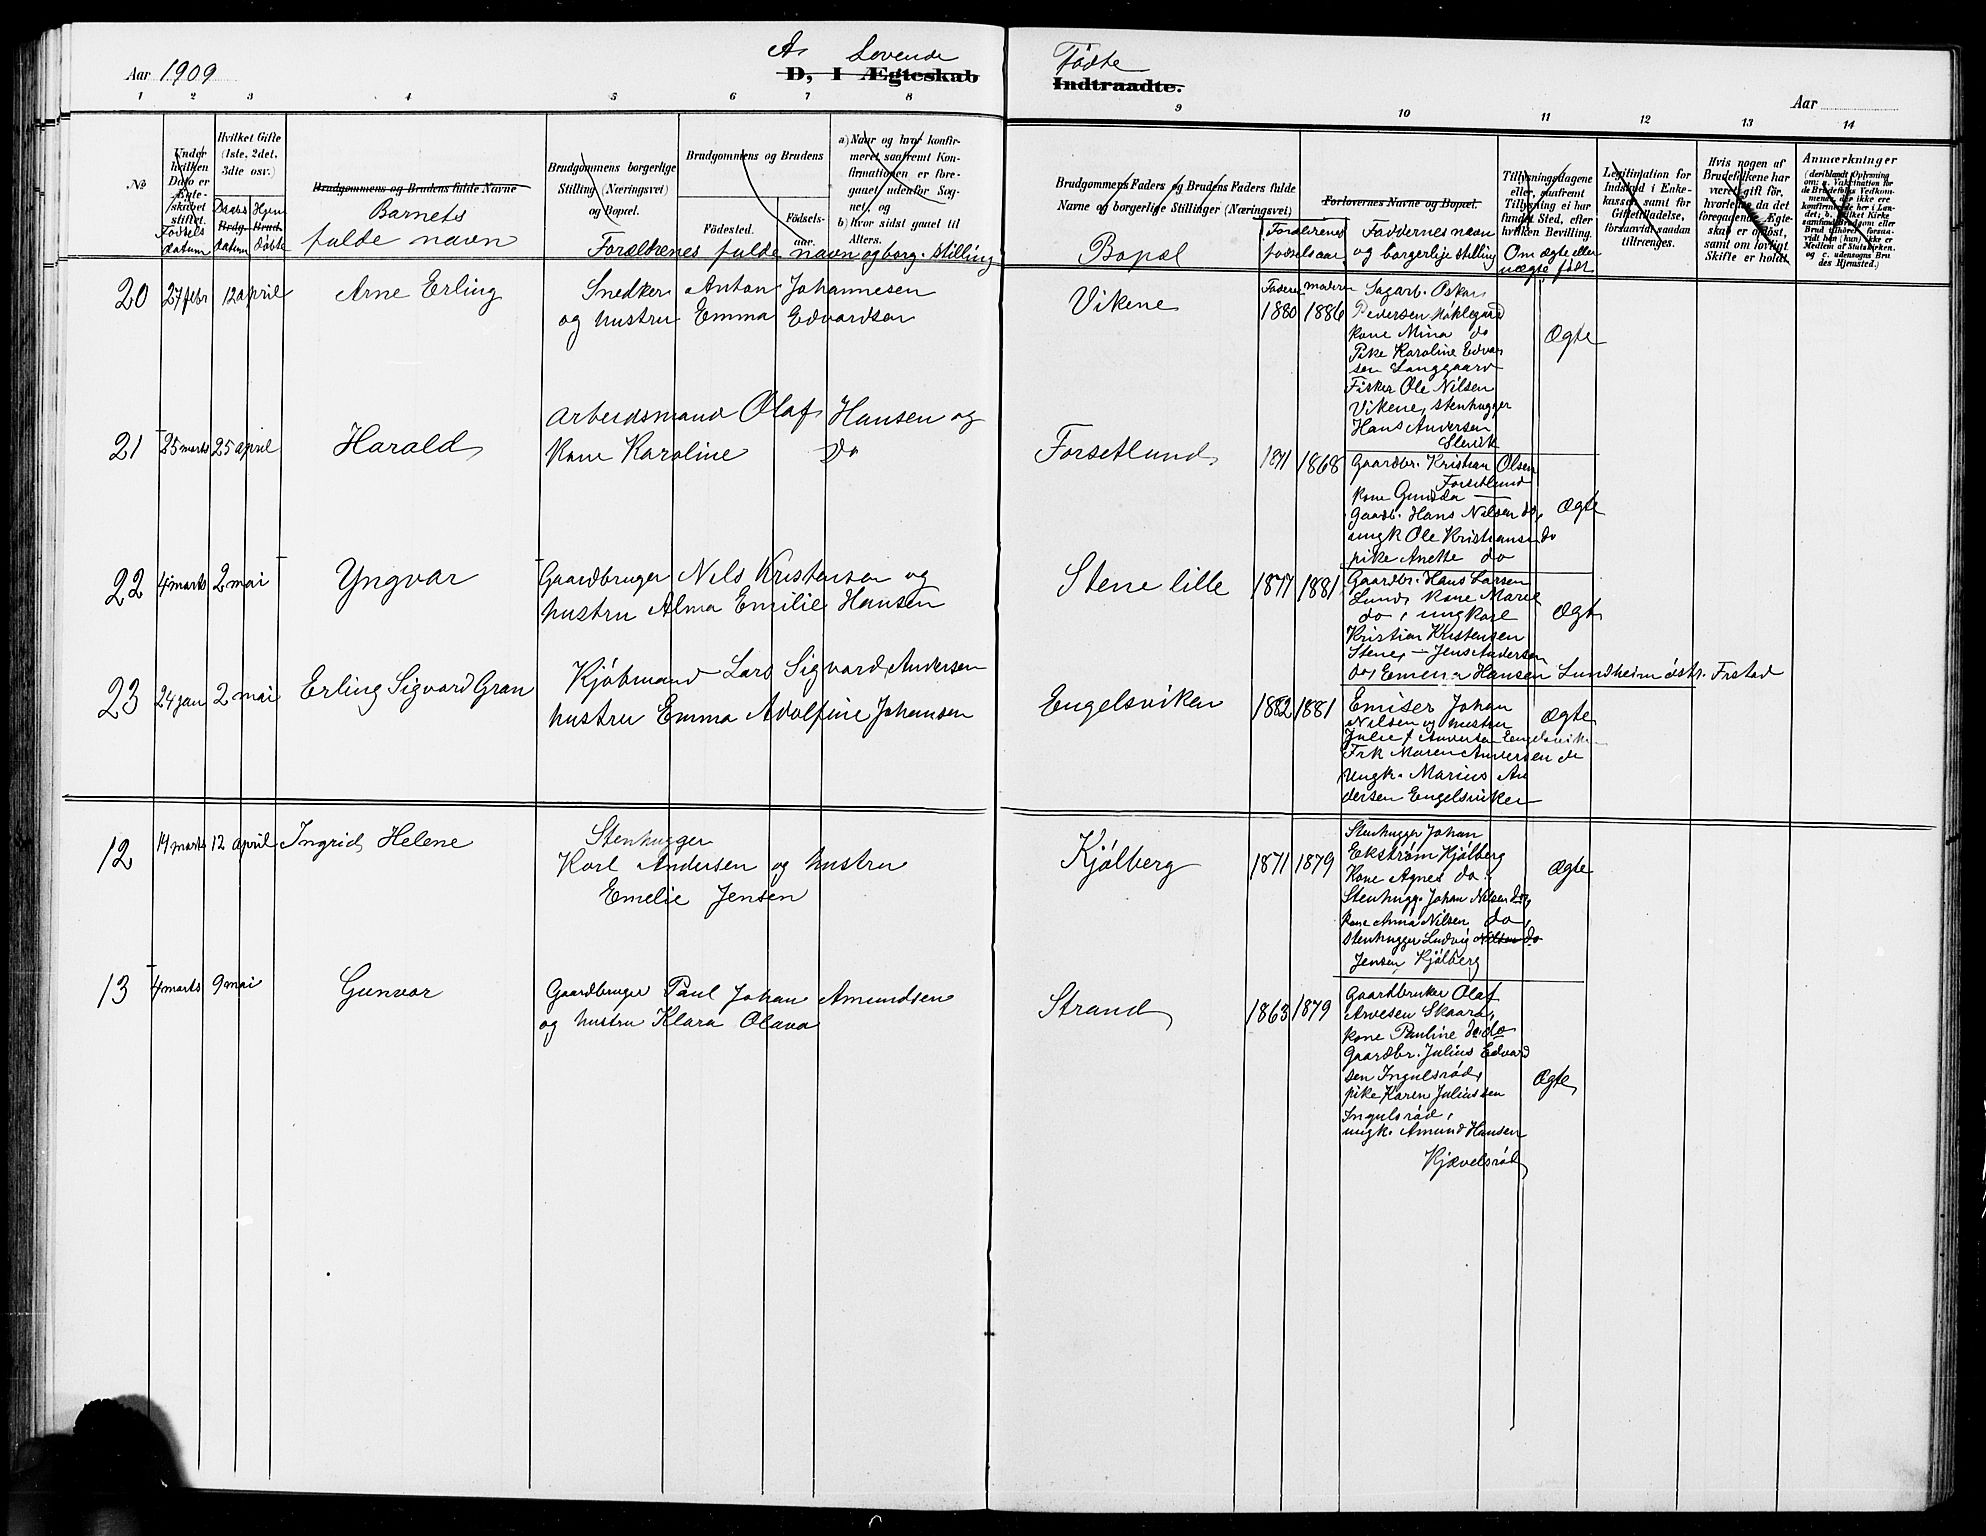 Aar 1909
A. Levende Fødte
D, I Ægteskab Indtraadte.
Aar
1 2 3 4 5 6 7 8 9 10 11 12 13 14
No
Under hvilken Dato er Ægteskabet stiftet.
Fødsels datum
Hvilket Gifte (1ste, 2det, 3dte osv.)
Brdg. Brud.
Daabs datum
Hjem døbte
Brudgommens og Brudens fulde Navne
Barnets
fulde navn
Brudgommens borgerlige Stilling (Næringsvei) og Bopæl.
Brudgommens og Brudens
Fødested.
Fødselsaar.
a) Naar og hvor konfirmeret saafremt Konfirmationen er foregaaet udenfor Sognet, og
b) hvor sidst gaaet til Alters.
Forældrenes fulde navn og borg. stilling
Brudgommens Faders og Brudens Faders fulde Navne og borgerlige Stillinger (Næringsvei)
Bopæl
Forældrenes fødselsaar
Forlovernes Navne og Bopæl.
Faddernes navn og borgerlije stilling
Tillysningsdagene eller, saafremt Tillysning ei har fundet Sted, efter hvilken Bevilling.
Om ægte eller uægte født
Legitimation for Indskud i Enkekassen samt for Giftetilladelse, forsaavidt saadan tiltrænges.
Hvis nogen af Brudefolkene har været gift før, hvorledes da det foregaaende Ægteskab er opløst, samt om lovligt Skifte er holdt.
Anmærkninger
20 27 febr 12 april Arne Erling
Snedker Anton Johannesen
og hustru Emma Edvardsen
Vikene
Faderen moderen
1880 1886
Sagarb. Oskar
Pedersen Høklegaard
kone Mina do
Pike Karoline Edvar
sen Langgaard
Fisker Ole Nilsen
Vikene, stenhugger
Hans Andersen
Slevik
Ægte
21 25 marts 25 april Harald
Arbeidsmand Olaf Hansen og
Kone Karoline do
Forsetlund
1871 1868
Gaardbr. Kristian Olsen
Forsetlund
kone Gunda —
Gaardb. Hans Nilsen do,
ungk Ole Kristiansen do
pike Anette do
Ægte
22 4 marts 2 mai Yngvar
Gaardbruger Nils Kristensen og
hustru Alma Emilie Hansen
Stene lille
1877 1881
Gaardbr. Hans Larsen
Lund, kone Marie
do, ungkarl
Kristian Kristensen
Stene, — Jens Andersen
do, Emma Hansen Lundheim østr. Frstad
Ægte
23 24 jan 2 mai Erling Sigvard Gran
Kjøbmand Lars Sigvard Andersen
hustru Emma Adolfine Johansen
Engelsviken
1882 1881
Emiser Johan
Nilsen og hustru
Julie f Andersen Engelsviken
Frk Maren Andersen do
Ungk. Marius An
dersen Engelsviken
Ægte
12 14 marts 12 april Ingrid Helene
Stenhugger
Karl Andersen og hustru
Emelie Jensen
Kjølberg
1871 1879
Stenhugger Johan
Ekstrøm Kjølberg
Kone Agnes do
Stenhugg. Johan Nilsen do,
kone Anna Nilsen do,
Stenhugger Ludvig Nilsen do
Jensen Kjølberg
Ægte
13 4 marts 9 mai Gunvor
Gaardbruger Paul Johan Amundsen
og hustru Klara Olava
Strand
1863 1879
Gaardbruker Olaf
Arvesen Skaara,
kone Pauline do do
Gaardbr. Julius Edvard
sen Ingulsrød,
pike Karen Juliussen
Ingulsrød,
ungk. Amund Hansen
Kjævelsrød
Ægte